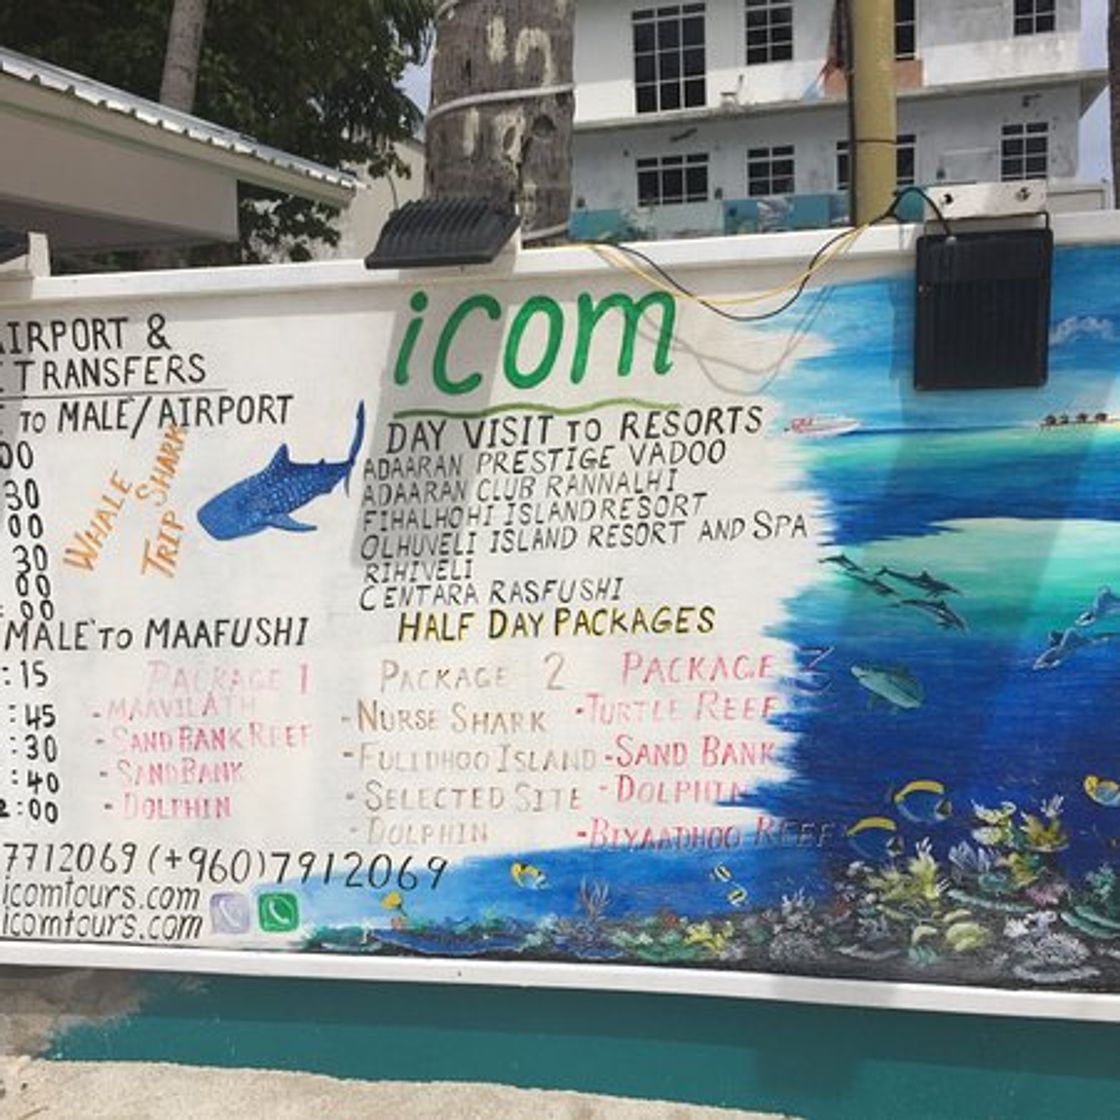 AIRPORT &
TRANSFERS
TO MALE'/AIRPORT
00
30
00
30
00
:00
WHALE SHARK
TRIP
MALE' TO MAAFUSHI
:15
:45
:30
:40
2:00
PACKAGE 1
-MAAVILATH
-SAND BANK REEF
-SANDBANK
-DOLPHIN
7712069 (+960)7912069
icomtours.com
icomtours.com
icom
DAY VISIT TO RESORTS
ADAARAN PRESTIGE VADOO
ADAARAN CLUB RANNALHI
FIHALHOHI ISLAND RESORT
OLHUVELI ISLAND RESORT AND SPA
RIHIVELI
CENTARA RASFUSHI
HALF DAY PACKAGES
PACKAGE 2
-NURSE SHARK
-FULIDHOO ISLAND
-SELECTED SITE
-DOLPHIN
PACKAGE 3
-TURTLE REEF
-SAND BANK
-DOLPHIN
-BIYAADHOO REEF